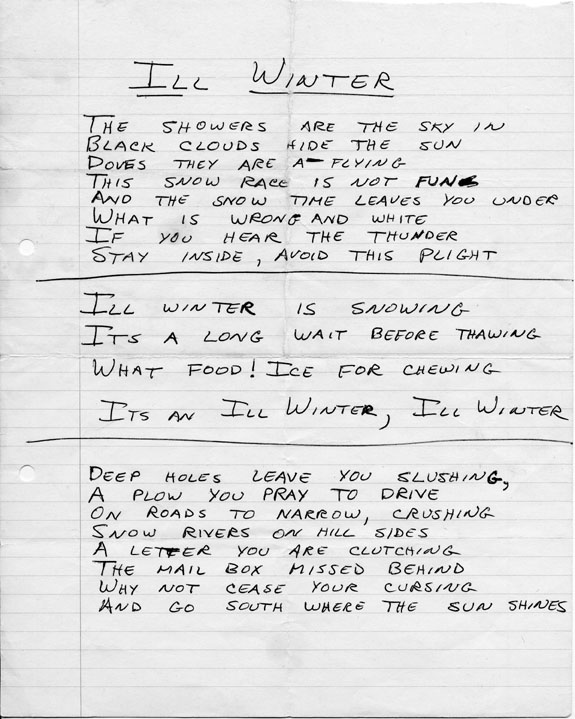 ILL WINTER
THE SHOWERS ARE THE SKY IN
BLACK CLOUDS HIDE THE SUN
DOVES THEY ARE A-FLYING
THIS SNOW RACE IS NOT FUN
AND THE SNOW TIME LEAVES YOU UNDER
WHAT IS WRONG AND WHITE
IF YOU HEAR THE THUNDER
STAY INSIDE, AVOID THIS PLIGHT
ILL WINTER IS SNOWING
ITS A LONG WAIT BEFORE THAWING
WHAT FOOD! ICE FOR CHEWING
ITS AN ILL WINTER, ILL WINTER
DEEP HOLES LEAVE YOU SLUSHING,
A PLOW YOU PRAY TO DRIVE
ON ROADS TO NARROW, CRUSHING
SNOW RIVERS ON HILL SIDES
A LETTER YOU ARE CLUTCHING
THE MAIL BOX MISSED BEHIND
WHY NOT CEASE YOUR CURSING
AND GO SOUTH WHERE THE SUN SHINES